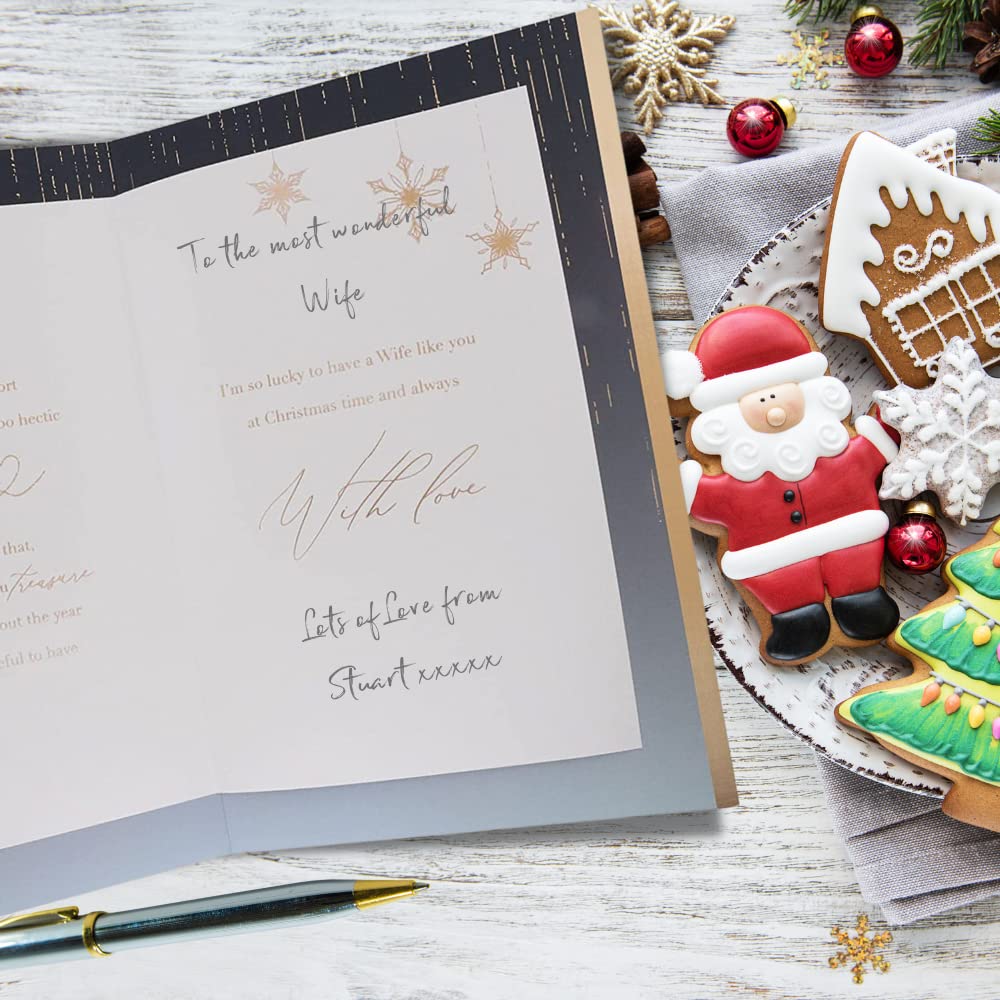 oo hectic
that,
treasure
out the year
To the most wonderful
Wife
I'm so lucky to have a Wife like you
at Christmas time and always
With love
Lots of Love from
Stuart xxxxx